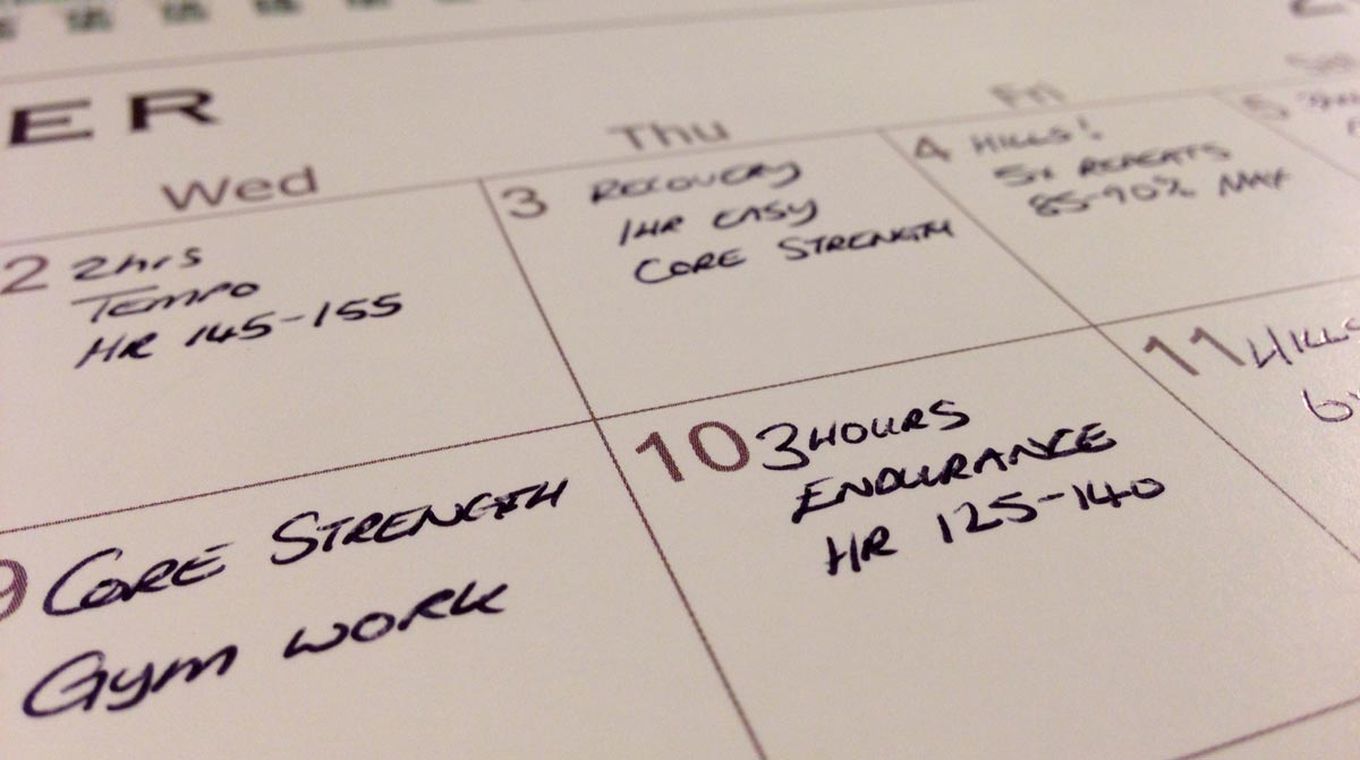 ER
Wed
Thu
Fri
2
2hrs
TEMPO
HR 145-155
3
RECOVERY
1HR EASY
CORE STRENGTH
4
HILLS!
5x REPEATS
85-90% MAX
5
9
CORE STRENGTH
Gym WORK
10
3 HOURS
ENDURANCE
HR 125-140
11
HILLS